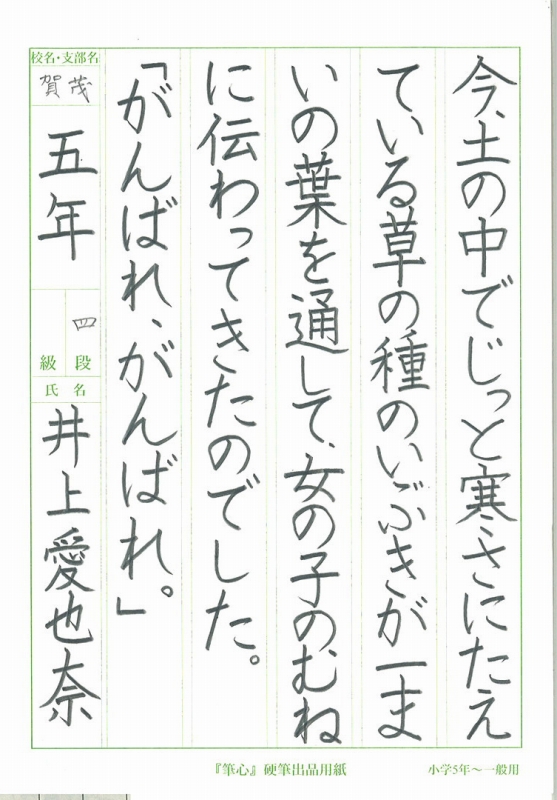 今、土の中でじっと寒さにたえ
ている草の種のいぶきが一ま
いの葉を通して、女の子のむね
に伝わってきたのでした。
「がんばれ、がんばれ。」
校名・支部名
賀茂
五年
四
級 段
氏 名
井上愛也奈
『筆心』硬筆出品用紙
小学5年〜一般用